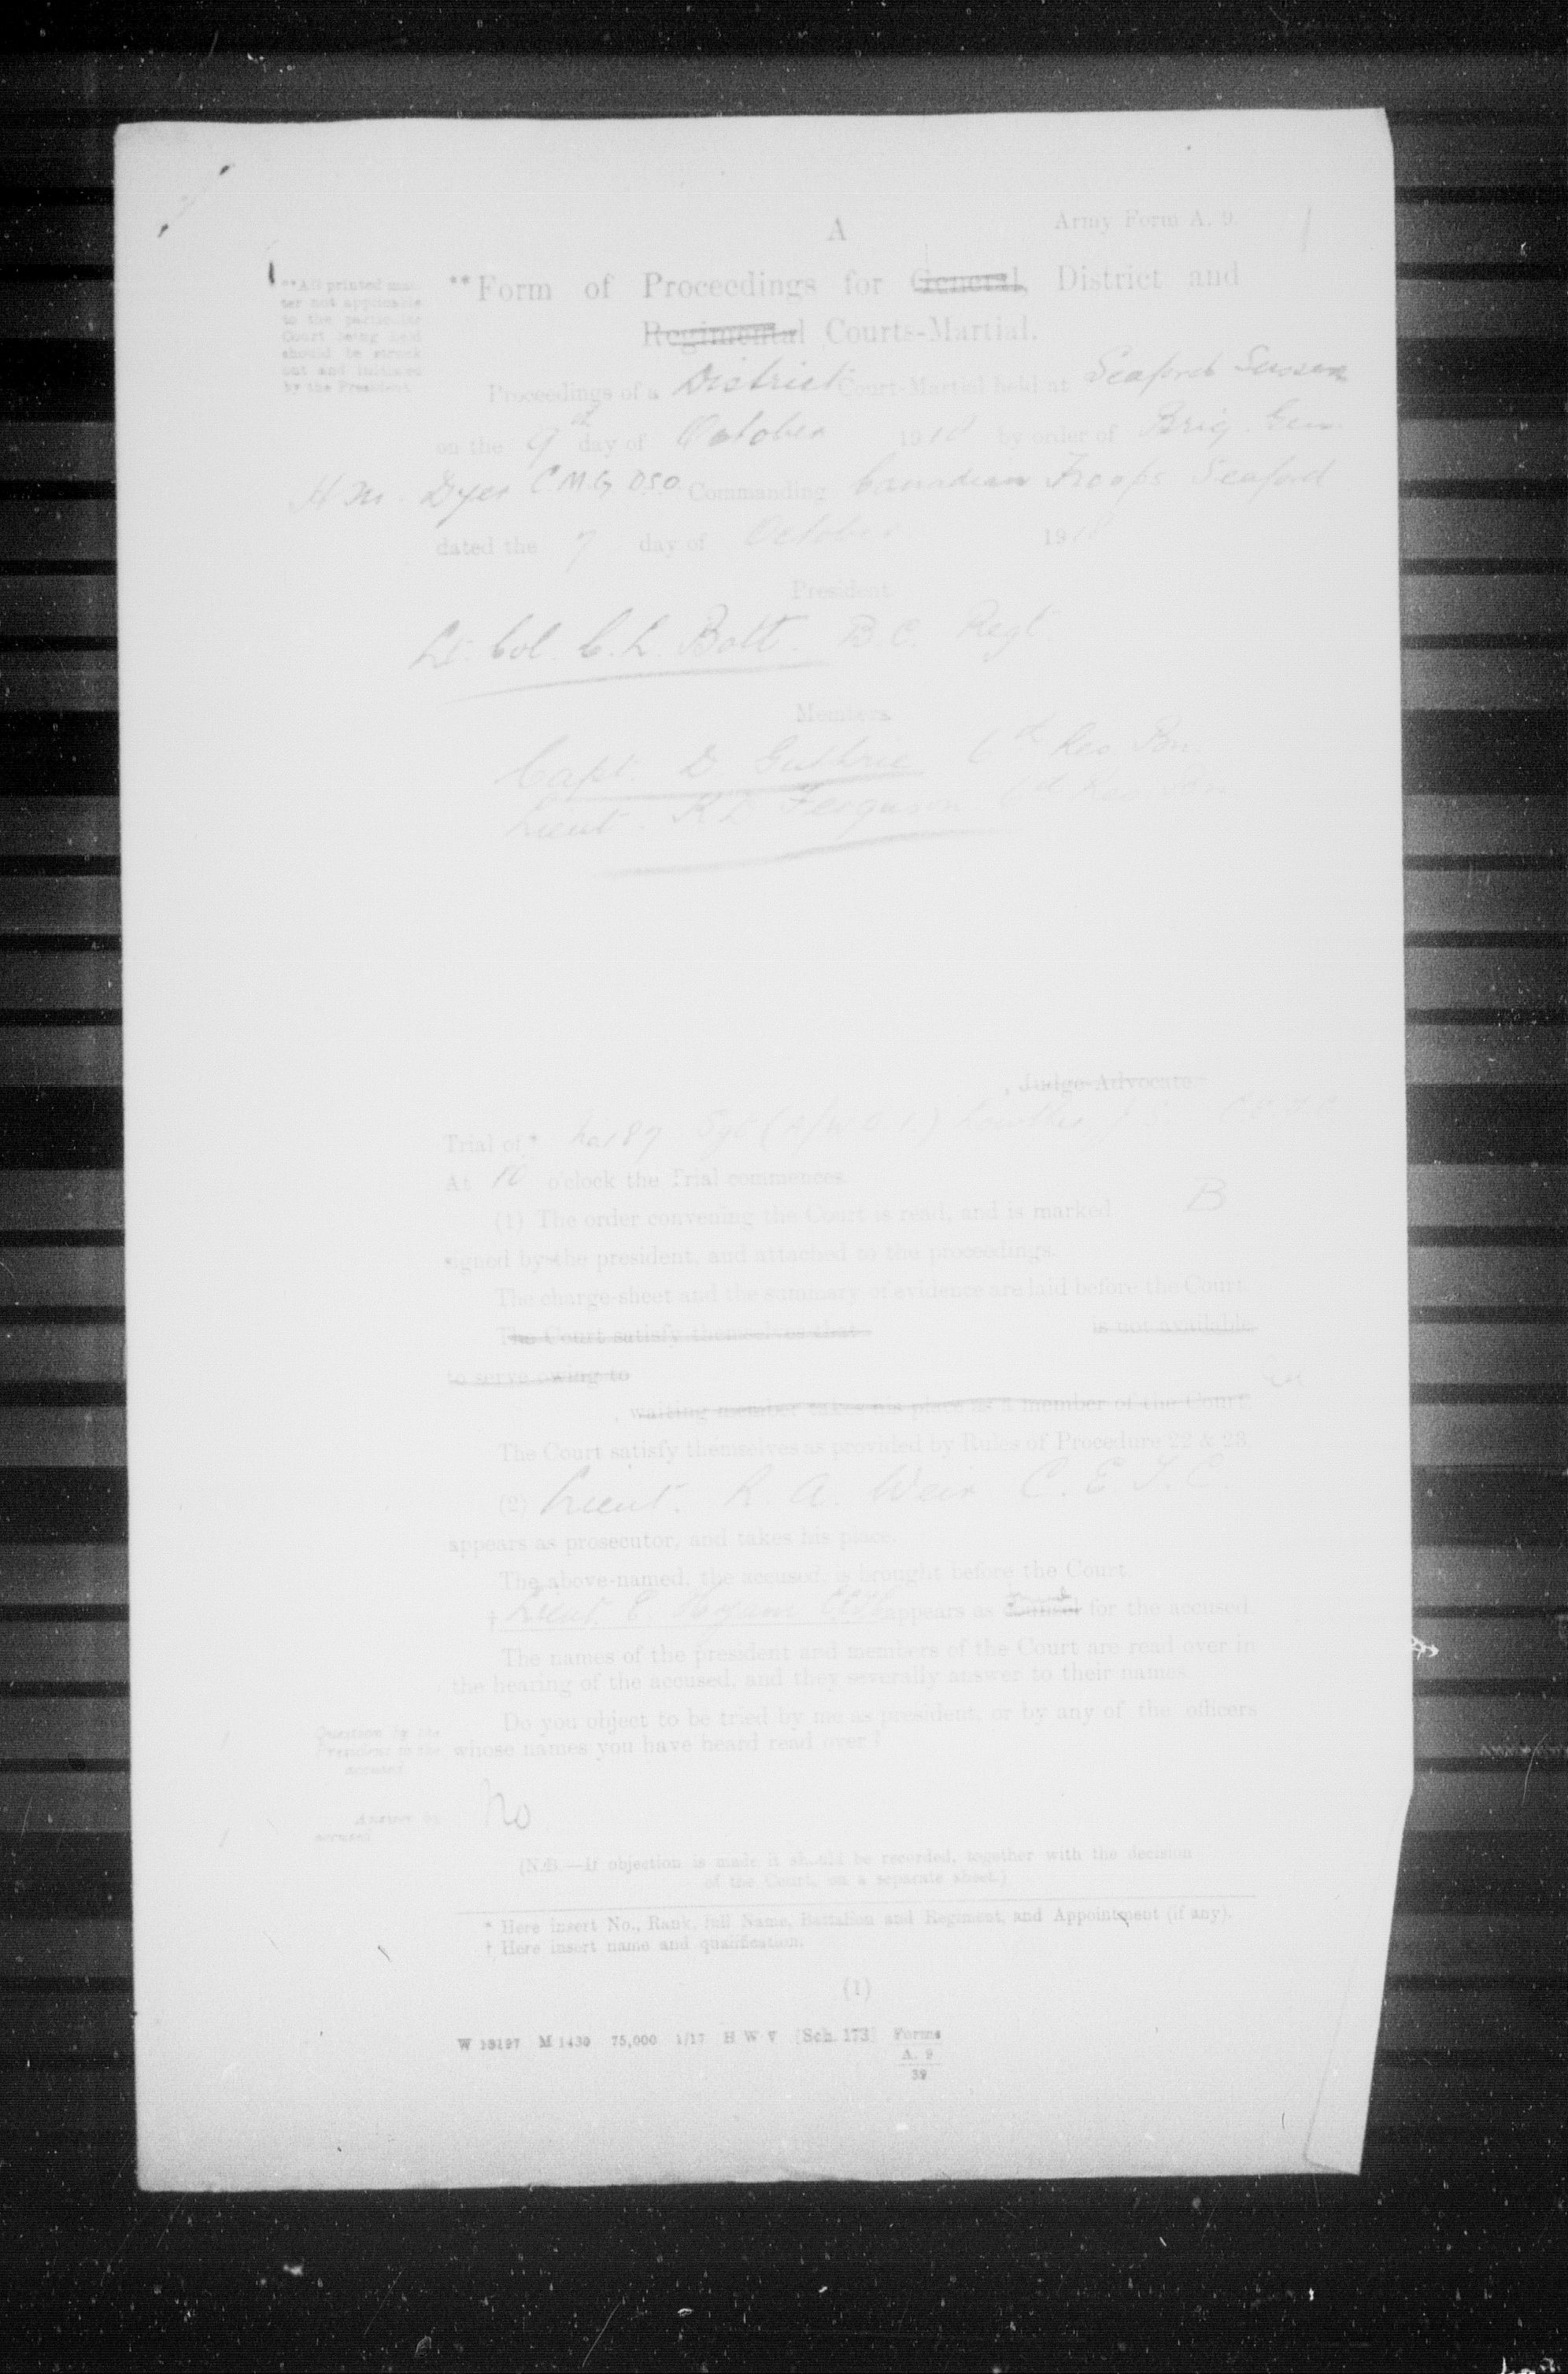 A
Army Form A. 9.
**All printed mat-
ter not applicable
to the particular
Court being held
should be struck
out and initialed
by the President.
**Form of Proceedings for General, District and
Regimental Courts-Martial.
Proceedings of a District Court-Martial held at Seaford Sussex
on the 9th day of October 1918 by order of Brig. Gen.
H. M. Dyer C.M.G. DSO Commanding Canadian Troops Seaford
dated the 7 day of October 1918
President.
Lt. Col. C. L. Bott. B.C. Regt.
Members.
Capt. D. Guthrie 6th Res. Bn.
Lieut. Ferguson Res. Bn.
, Judge-Advocate
Trial of*
At 10 o'clock the Trial commences.
(1) The order convening the Court is read, and is marked B
signed by the president, and attached to the proceedings.
The charge-sheet and the summary of evidence are laid before the Court.
The Court satisfy themselves that is not available
to serve owing to
, waiting member takes his place as a member of the Court.
The Court satisfy themselves as provided by Rules of Procedure 22 & 23
(2) Lieut. R. A. Weir C.
appears as prosecutor, and takes his place.
The above-named, the accused, is brought before the Court.
† Lieut. E. appears as Counsel for the accused.
The names of the president and members of the Court are read over in
the hearing of the accused, and they severally answer to their names.
Question by the
President to the
accused.
Do you object to be tried by me as president, or by any of the officers
whose names you have heard read over?
Answer by
accused
No
(N.B.—If objection is made it should be recorded, together with the decision
of the Court, on a separate sheet.)
* Here insert No., Rank, full Name, Battalion and Regiment, and Appointment (if any).
† Here insert name and qualification.
(1)
W 13197 M 1430 75,000 1/17 H W V [Sch. 173] Forms
A. 9
39